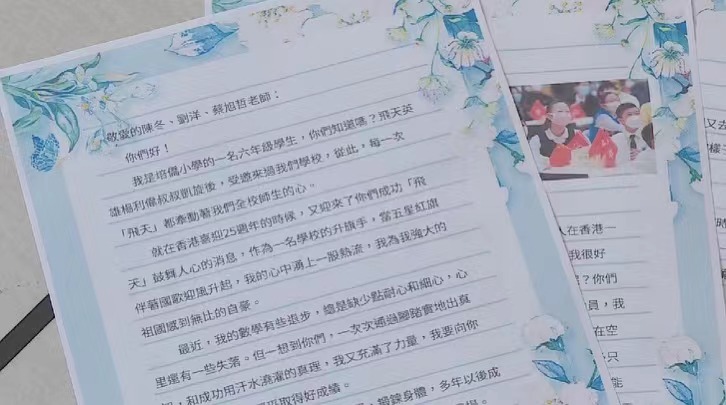 敬愛的陳冬、劉洋、蔡旭哲老師：
你們好！
我是培僑小學的一名六年級學生，你們知道嗎？飛天英
雄楊利偉叔叔凱旋後，受邀來過我們學校，從此，每一次
「飛天」都牽動著我們全校師生的心。
就在香港喜迎25週年的時候，又迎來了你們成功「飛
天」鼓舞人心的消息，作為一名學校的升旗手，當五星紅旗
伴著國歌迎風升起，我的心中湧上一股熱流，我為我強大的
祖國感到無比的自豪。
最近，我的數學有些退步，總是缺少點耐心和細心，心
里還有一些失落。但一想到你們，一次次通過腳踏實地出真
知，和成功用汗水澆灌的真理，我又充滿了力量，我要向你
取得好成績。
鍛鍊身體，多年以後成
又去
人在香港一
我很好
？你們
員，我
在空
只
能